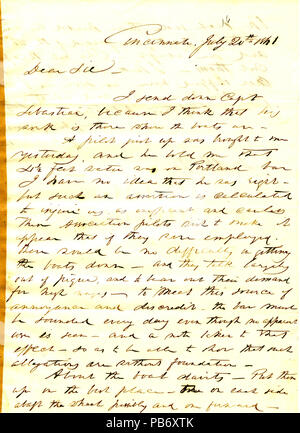 Cincinnati, July 20th 1861
Dear Sir —
I send down Capt
Sebastian, because I think that his
work is there where the boats are —
A pilot just up was brought to me
yesterday, and he told me that
six feet water was on Portland bar
I have no idea that he was right —
but such an assertion is calculated
to injure us, as inefficient and careless
then
pilots and to make it
appear that if they were employed
there would be no difficulty in getting
the boats down — and they talk largely
out of
and to bear out their demand
for high wages — to meet this source of
annoyance and discredit the bar must
be sounded every day even though no apparent
use is seen — and a note taken to that
effect — so as to be able to show that such
allegations are without foundation —
About the boat davits — Put them
up in the best place — one on each side
abaft the wheel possibly and one forward —
alamy
Image ID: PB6XTK
www.alamy.com